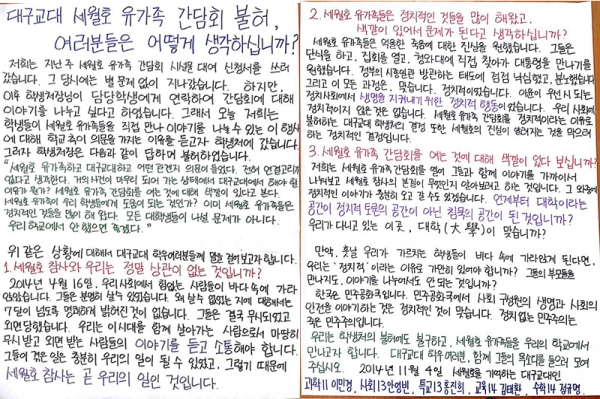 대구교대 세월호 유가족 간담회 불허,
여러분들은 어떻게 생각하십니까?
저희는 지난 주 세월호 유가족 간담회 시설물 대여 신청서를 쓰러
갔습니다. 그 당시에는 별 문제 없이 지나갔습니다. 하지만,
이후 학생처장님이 담당학생에게 연락하여 간담회에 대해
이야기를 나누고 싶다고 하였습니다. 그래서 오늘 저희는
학생들이 세월호 유가족을 직접 만나 이야기를 나눌 수 있는 이 행사
에 대해 학교 측이 의문을 가지는 이유를 듣고자 학생처에 갔습니다.
그러자 학생처장은 다음과 같이 답하며 불허하였습니다.
"세월호 유가족하고 대구교대하고 어떤 관련지 의문이 들었다. 전혀 연결고리가
없다고 생각한다. 거의 사건이 마무리 되어 가는 상태에서 대구교대에서 해야 할
이유가 뭔가? 세월호 유가족 간담회를 여는 것에 대해 색깔이 있다고 본다.
세월호 유가족이 우리 학생들에게 도움이 되는 것인가? 이미 세월호 유가족은
정치적인 것들을 많이 해 왔다. 모든 대학생들이 나설 문제가 아니다.
우리 학교에서 안 했으면 좋겠다."
위 같은 상황에 대해서 대구교대 학우여러분들께 몇몇 질문을 해보고자 합니다.
1. 세월호 참사와 우리는 정말 상관이 없는 것입니까?
2014년 4월 16일, 우리사회에서 힘없는 사람들이 바다 속에 가라
앉았습니다. 그들은 분명히 살 수 있었습니다. 왜 살 수 없었는지에 대해서는
7달이 넘도록 명쾌하게 밝혀진 것이 없습니다. 그들은 결국 무시되었고
외면당했습니다. 우리는 이시대를 함께 살아가는 사람으로서 마땅히
무시 받고 외면 받는 사람들의 이야기를 듣고 소통해야 합니다.
그들이 겪은 일은 충분히 우리의 일이 될 수 있었고, 그렇기 때문에
세월호 참사는 곧 우리의 일인 것입니다.
2. 세월호 유가족들은 정치적인 것들을 많이 해왔고,
색깔이 있어서 문제가 된다고 생각하십니까?
세월호 유가족들은 억울한 죽음에 대한 진상을 원했습니다. 그들은
단식을 하고, 집회를 열고, 청와대에 직접 찾아가 대통령을 만나기를
원했습니다. 정부의 시종일관 방관하는 태도에 점점 낙심했고, 분노했습니다.
그리고 이 모든 과정은, 맞습니다. 정치적이었습니다. 이들이 우연시 되는
정치사회에서 생명을 지켜내기 위한 정치적 행동이었습니다. 우리 사회에
정치적이지 않은 것은 없습니다. 세월호 유가족 간담회를 정치적이라는 이유로
불허하는 대구교대 학생처의 결정 또한 세월호의 진실이 알려지는 것을 막으려
하는 정치적인 결정입니다.
3. 세월호 유가족 간담회를 여는 것에 대해 색깔이 있다 보십니까?
저희는 세월호 유가족 간담회를 열어 그들과 함께 이야기를 가까이서
나누어보고 세월호 참사의 본질이 무엇인지 알아보려고 하는 것입니다. 그 와중에
정치적인 이야기가 충분히 오고 갈 수도 있겠습니다. 언제부터 대학이라는
공간이 정치적 토론의 공간이 아닌 침묵의 공간이 된 것입니까?
우리가 다니고 있는 이곳, 대학(大學)이 맞습니까?
만약, 훗날 우리가 가르치는 학생들이 바다 속에 가라앉게 된다면,
우리는 '정치적'이라는 이유로 가만히 있어야 합니까? 그들의 부모들을
만나지도, 이야기를 나누어서도 안 되는 것입니까?
한국은 민주공화국입니다. 민주공화국에서 사회 구성원의 생명과 사회의
안전을 이야기하는 것은 정치적인 것이 맞습니다. 정치없는 민주주의는
죽은 민주주의입니다.
우리는 학생처의 불허에도 불구하고, 세월호 유가족들을 우리의 학교에서
만나고자 합니다. 대구교대 학우여러분, 함께 그들의 목소리를 들으러 모여
주십시오. 2014년 11월 4일 세월호를 기억하는 대구교대인
과학11 이민경, 사회13 안영빈, 특교13 홍진희, 교육14 김태환, 수학14 정규명.